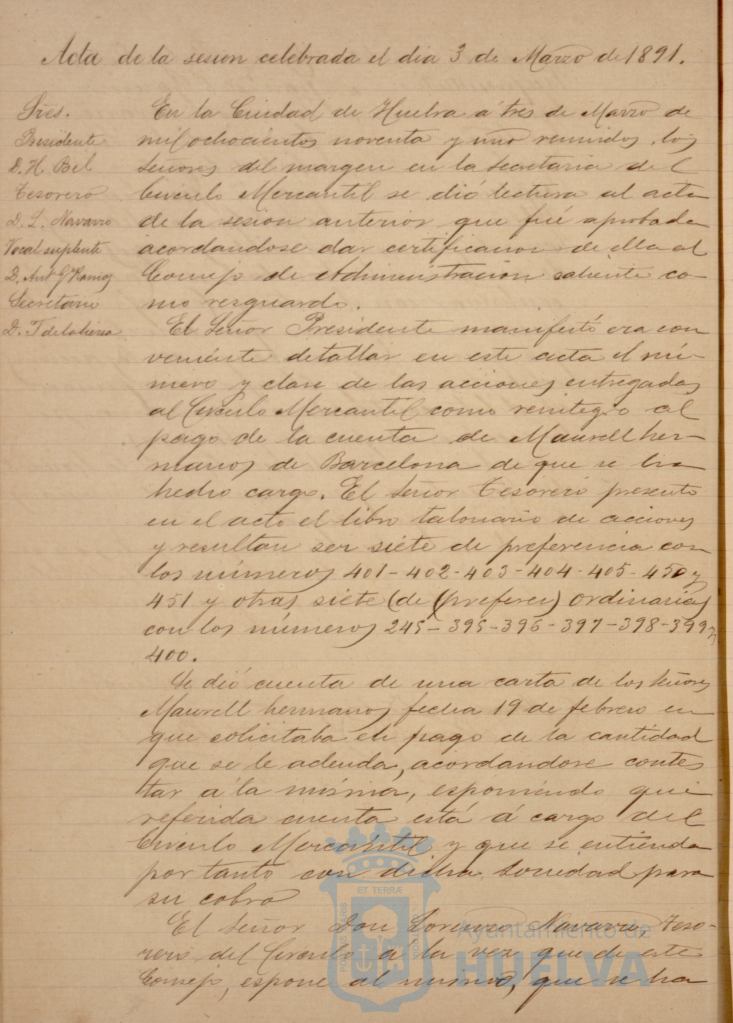 Acta de la sesion celebrada el dia 3 de Marzo de 1891.
Sres.
Presidente
D. H. Bel
Tesorero
D. L. Navarro
Vocal suplente
D. Ant. G. Ramos
Secretario
D. T. de la
En la Ciudad de Huelva á tres de Marzo de
mil ochocientos noventa y uno reunidos los
Señores del margen en la Secretaria del
Circulo Mercantil se dió lectura al acta
de la sesion anterior que fué aprobada
acordandose dar certificacion de ella al
Consejo de Administracion saliente co-
mo resguardo.
El Señor Presidente manifestó era con
veniente detallar en este acta el nú-
mero y clase de las acciones entregadas
al Circulo Mercantil como reintegro al
pago de la cuenta de Maurell her-
manos de Barcelona de que se ha
hecho cargo. El Señor Tesorero presentó
en el acto el libro talonario de acciones
y resultan ser siete de preferencia con
los números 401-402-403-404-405-450 y
451 y otras siete (de (prefere) ordinarias
con los números 245-395-396-397-398-399 y
400.
Se dió cuenta de una carta de los Señores
Maurell hermanos fecha 19 de febrero en
que solicitaba el pago de la cantidad
que se le adeuda, acordandose contes
tar á la misma, esponiendo que
referida cuenta está á cargo del
Circulo Mercantil y que se entienda
por tanto con dicha Sociedad para
su cobro
El Señor Don Lorenzo Navarro, Teso-
rero del Circulo á la vez que de este
Consejo, espone al mismo, que se ha
ET TERRÆ
Ayuntamiento de
HUELVA